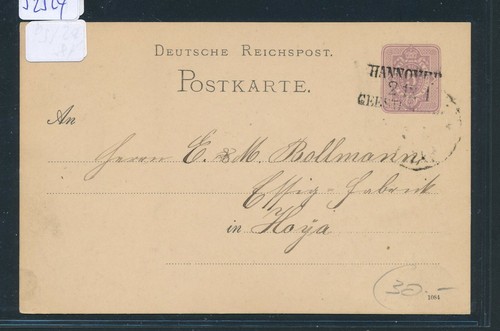 52524
DEUTSCHE REICHSPOST.
POSTKARTE.
HANNOVER
An
Herrn E. & M. Bollmann
Essig-Fabrik
in Hoya
30.-
1084